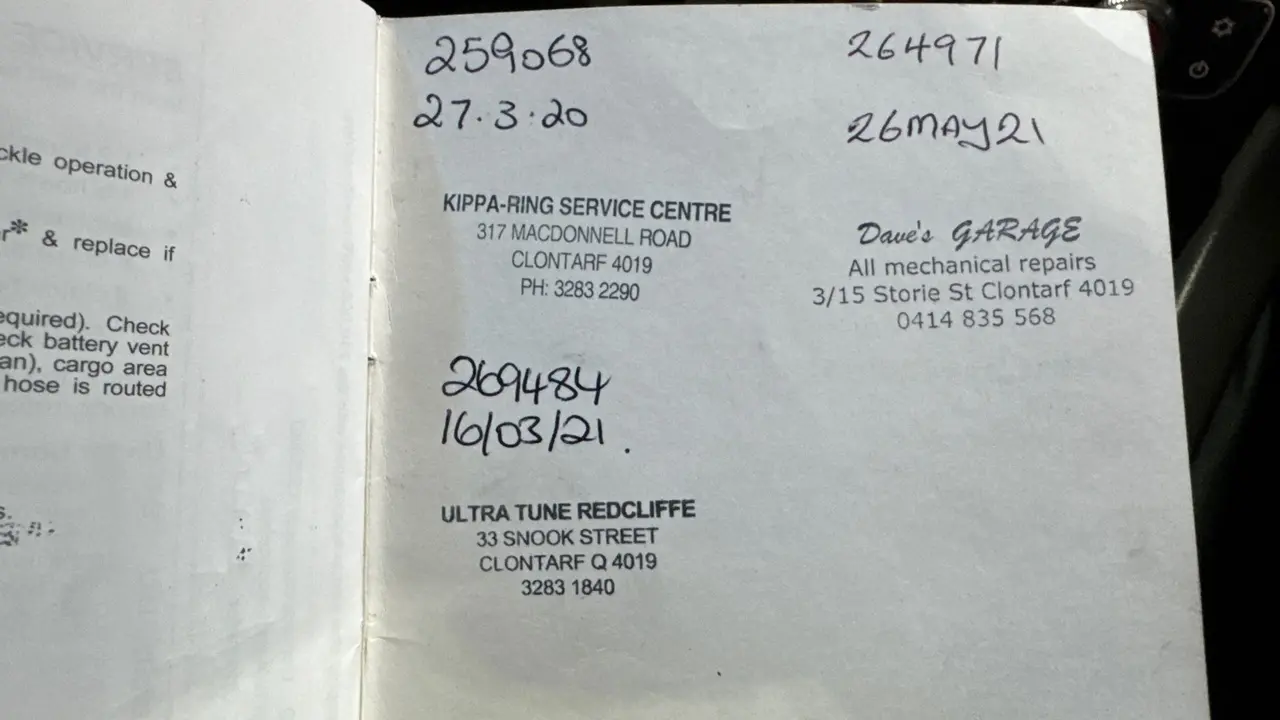 ckle operation &
r* & replace if
equired). Check
eck battery vent
an), cargo area
hose is routed
s.
259068
27.3.20
KIPPA-RING SERVICE CENTRE
317 MACDONNELL ROAD
CLONTARF 4019
PH: 3283 2290
269484
16/03/21.
ULTRA TUNE REDCLIFFE
33 SNOOK STREET
CLONTARF Q 4019
3283 1840
264971
26MAY21
Dave's GARAGE
All mechanical repairs
3/15 Storie St Clontarf 4019
0414 835 568